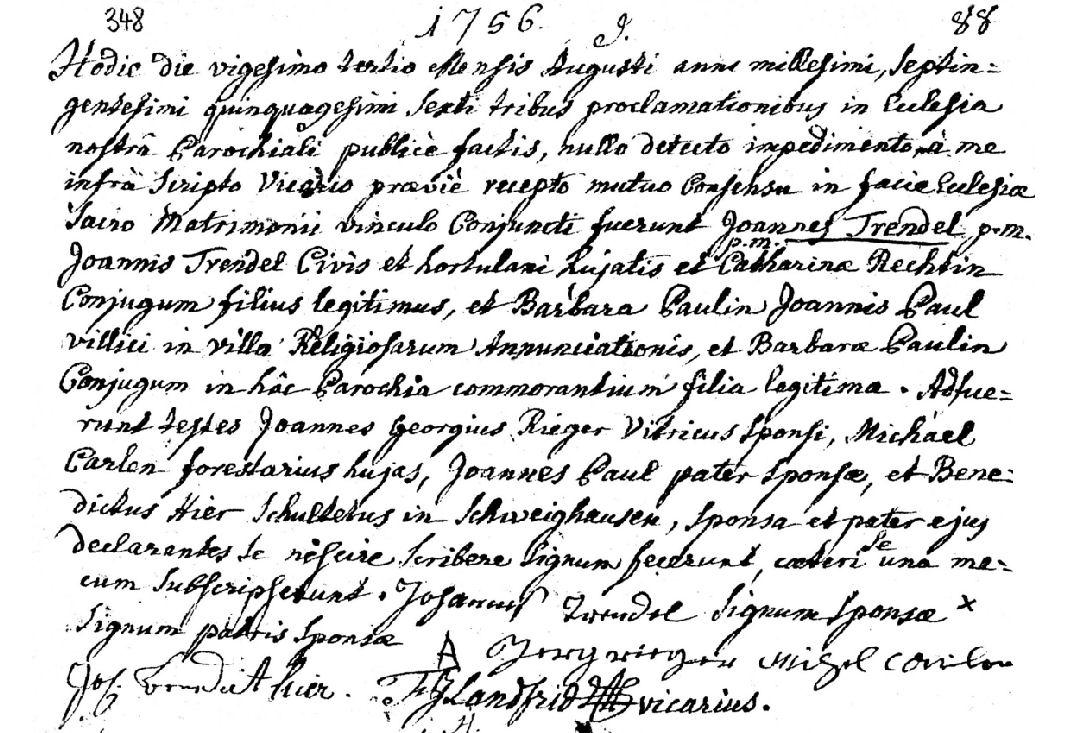 348 1756. J. 88
Hodie die vigesimo tertio Mensis Augusti anni millesimi, Septin=
gentesimi quinquagesimi Sexti tribus proclamationibus in Eclesia
nostrâ Parochiali publicè factis, nullo detecto impedimento, à me
infrà Scripto Vicario præviè recepto mutuo Consensu in facie Eclesiæ
Sacro Matrimonii vinculo Conjuncti fuerunt Joannes Trendel p.m.
p.m.
Joannis Trendel Civis et hortulani hujatis et Catharinæ Rechtin
Conjugum filius legitimus, et Barbara Paulin Joannis Paul
villici in villa Religiosarum Annunciationis, et Barbaræ Paulin
Conjugum in hâc Parochia commorantium filia legitima. Adfue=
runt testes Joannes Georgius Rieger Vitricus Sponsi, Michael
Carlen forestarius hujas, Joannes Paul pater Sponsæ, et Bene=
dictus Hier Schultetus in Schweighausen, Sponsa et pater ejus
declarantes se nescire Scribere Signum fecerunt, cæteri se una me=
cum Subscripserunt. Johannes Trendel Signum Sponsæ x
Signum patris Sponsæ A Jerg rieger Michel Carlen
Jos. benedict hier. Landfrid vicarius.